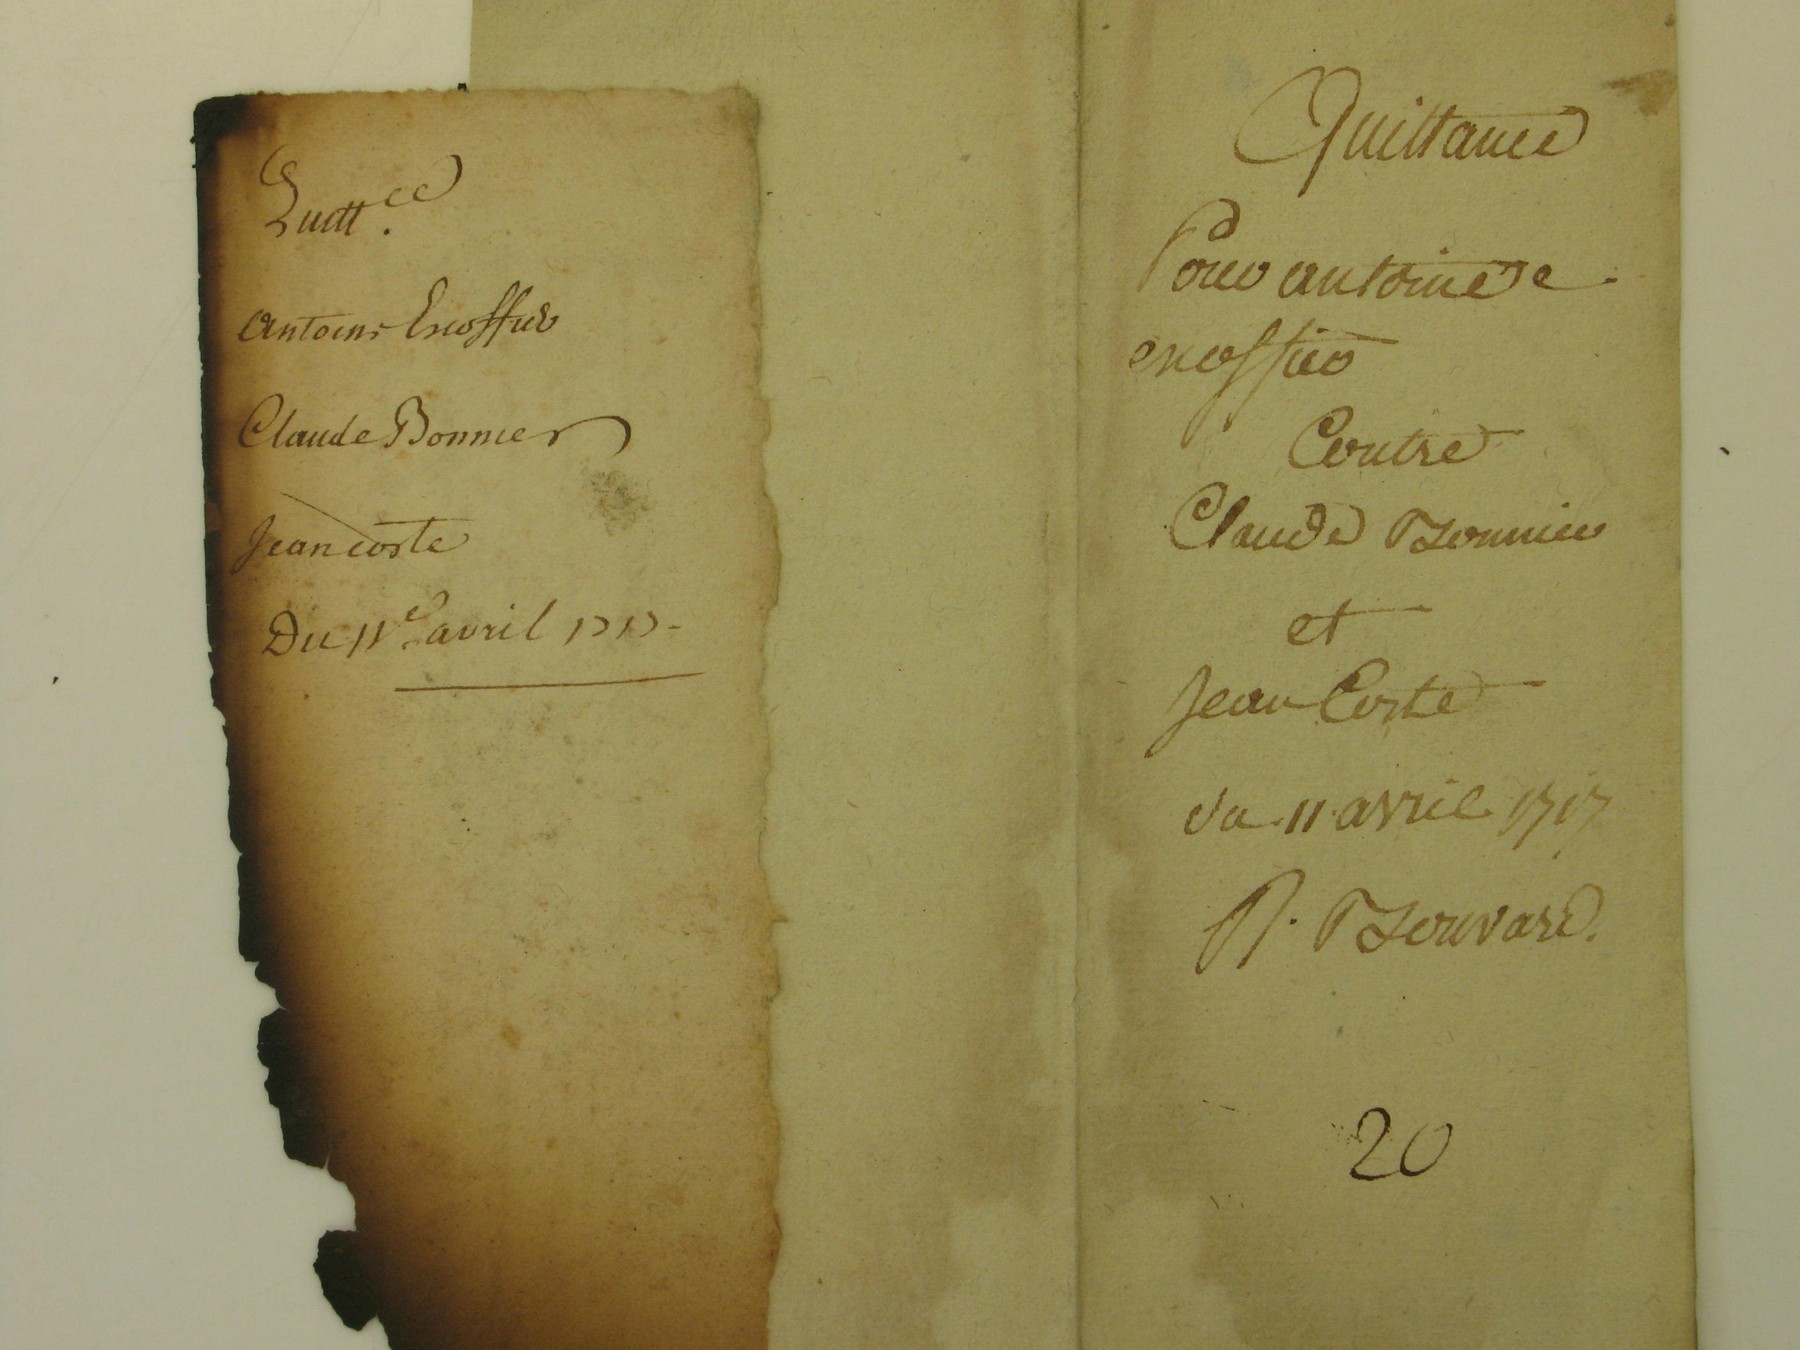 Quitt.ce
antoine Escoffier
Claude Bonnier
Jean coste
Du 11e avril 1717
Quittance
Pour antoine
escoffier
Contre
Claude Bonnier
et
Jean Coste
du 11 avril 1717
Bouvard.
20